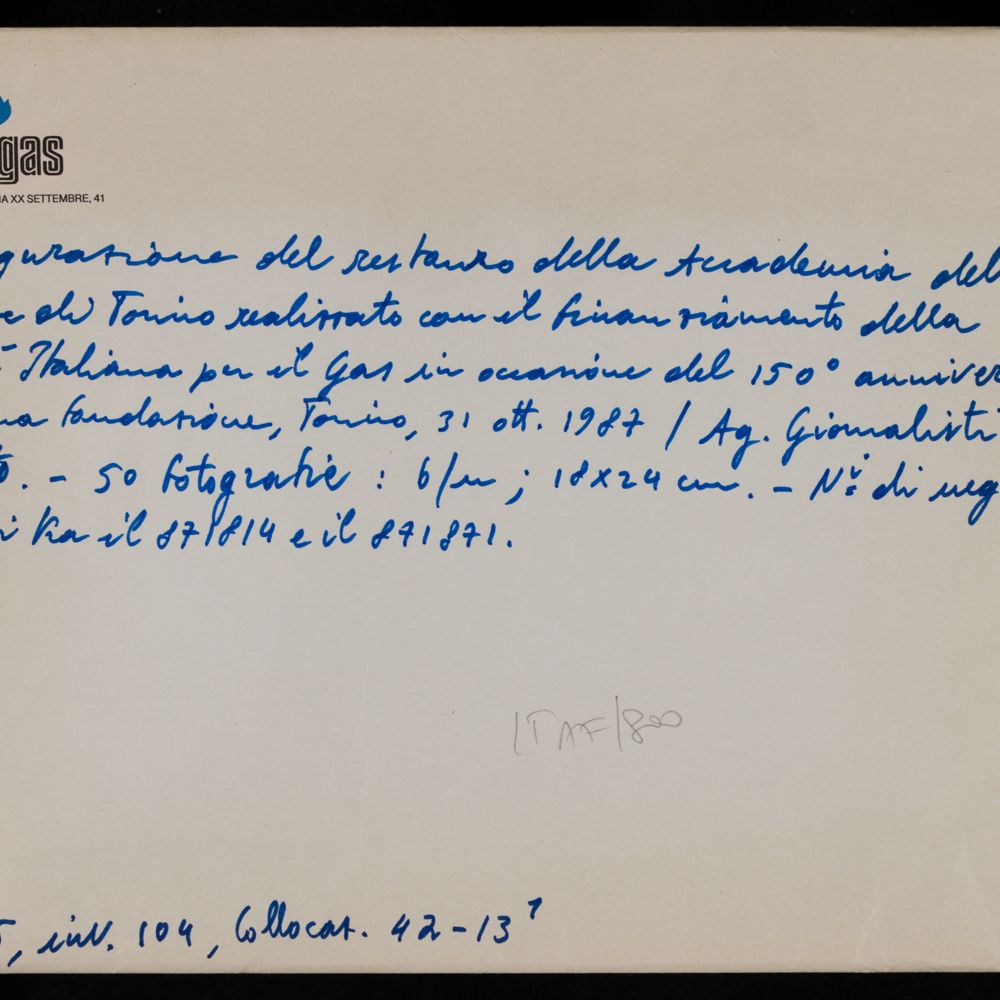 gas
IA XX SETTEMBRE, 41
gurazione del restauro della Accademia del
e di Torino realizzato con il finanziamento della
Italiana per il Gas in occasione del 150° anniver
ua fondazione, Torino, 31 ott. 1987 / Ag. Giornalisti
. - 50 fotografie : b/n ; 18x24 cm. - N.i di neg
i fra il 871814 e il 871871.
ITAF/800
, inv. 104, Collocaz. 42-13